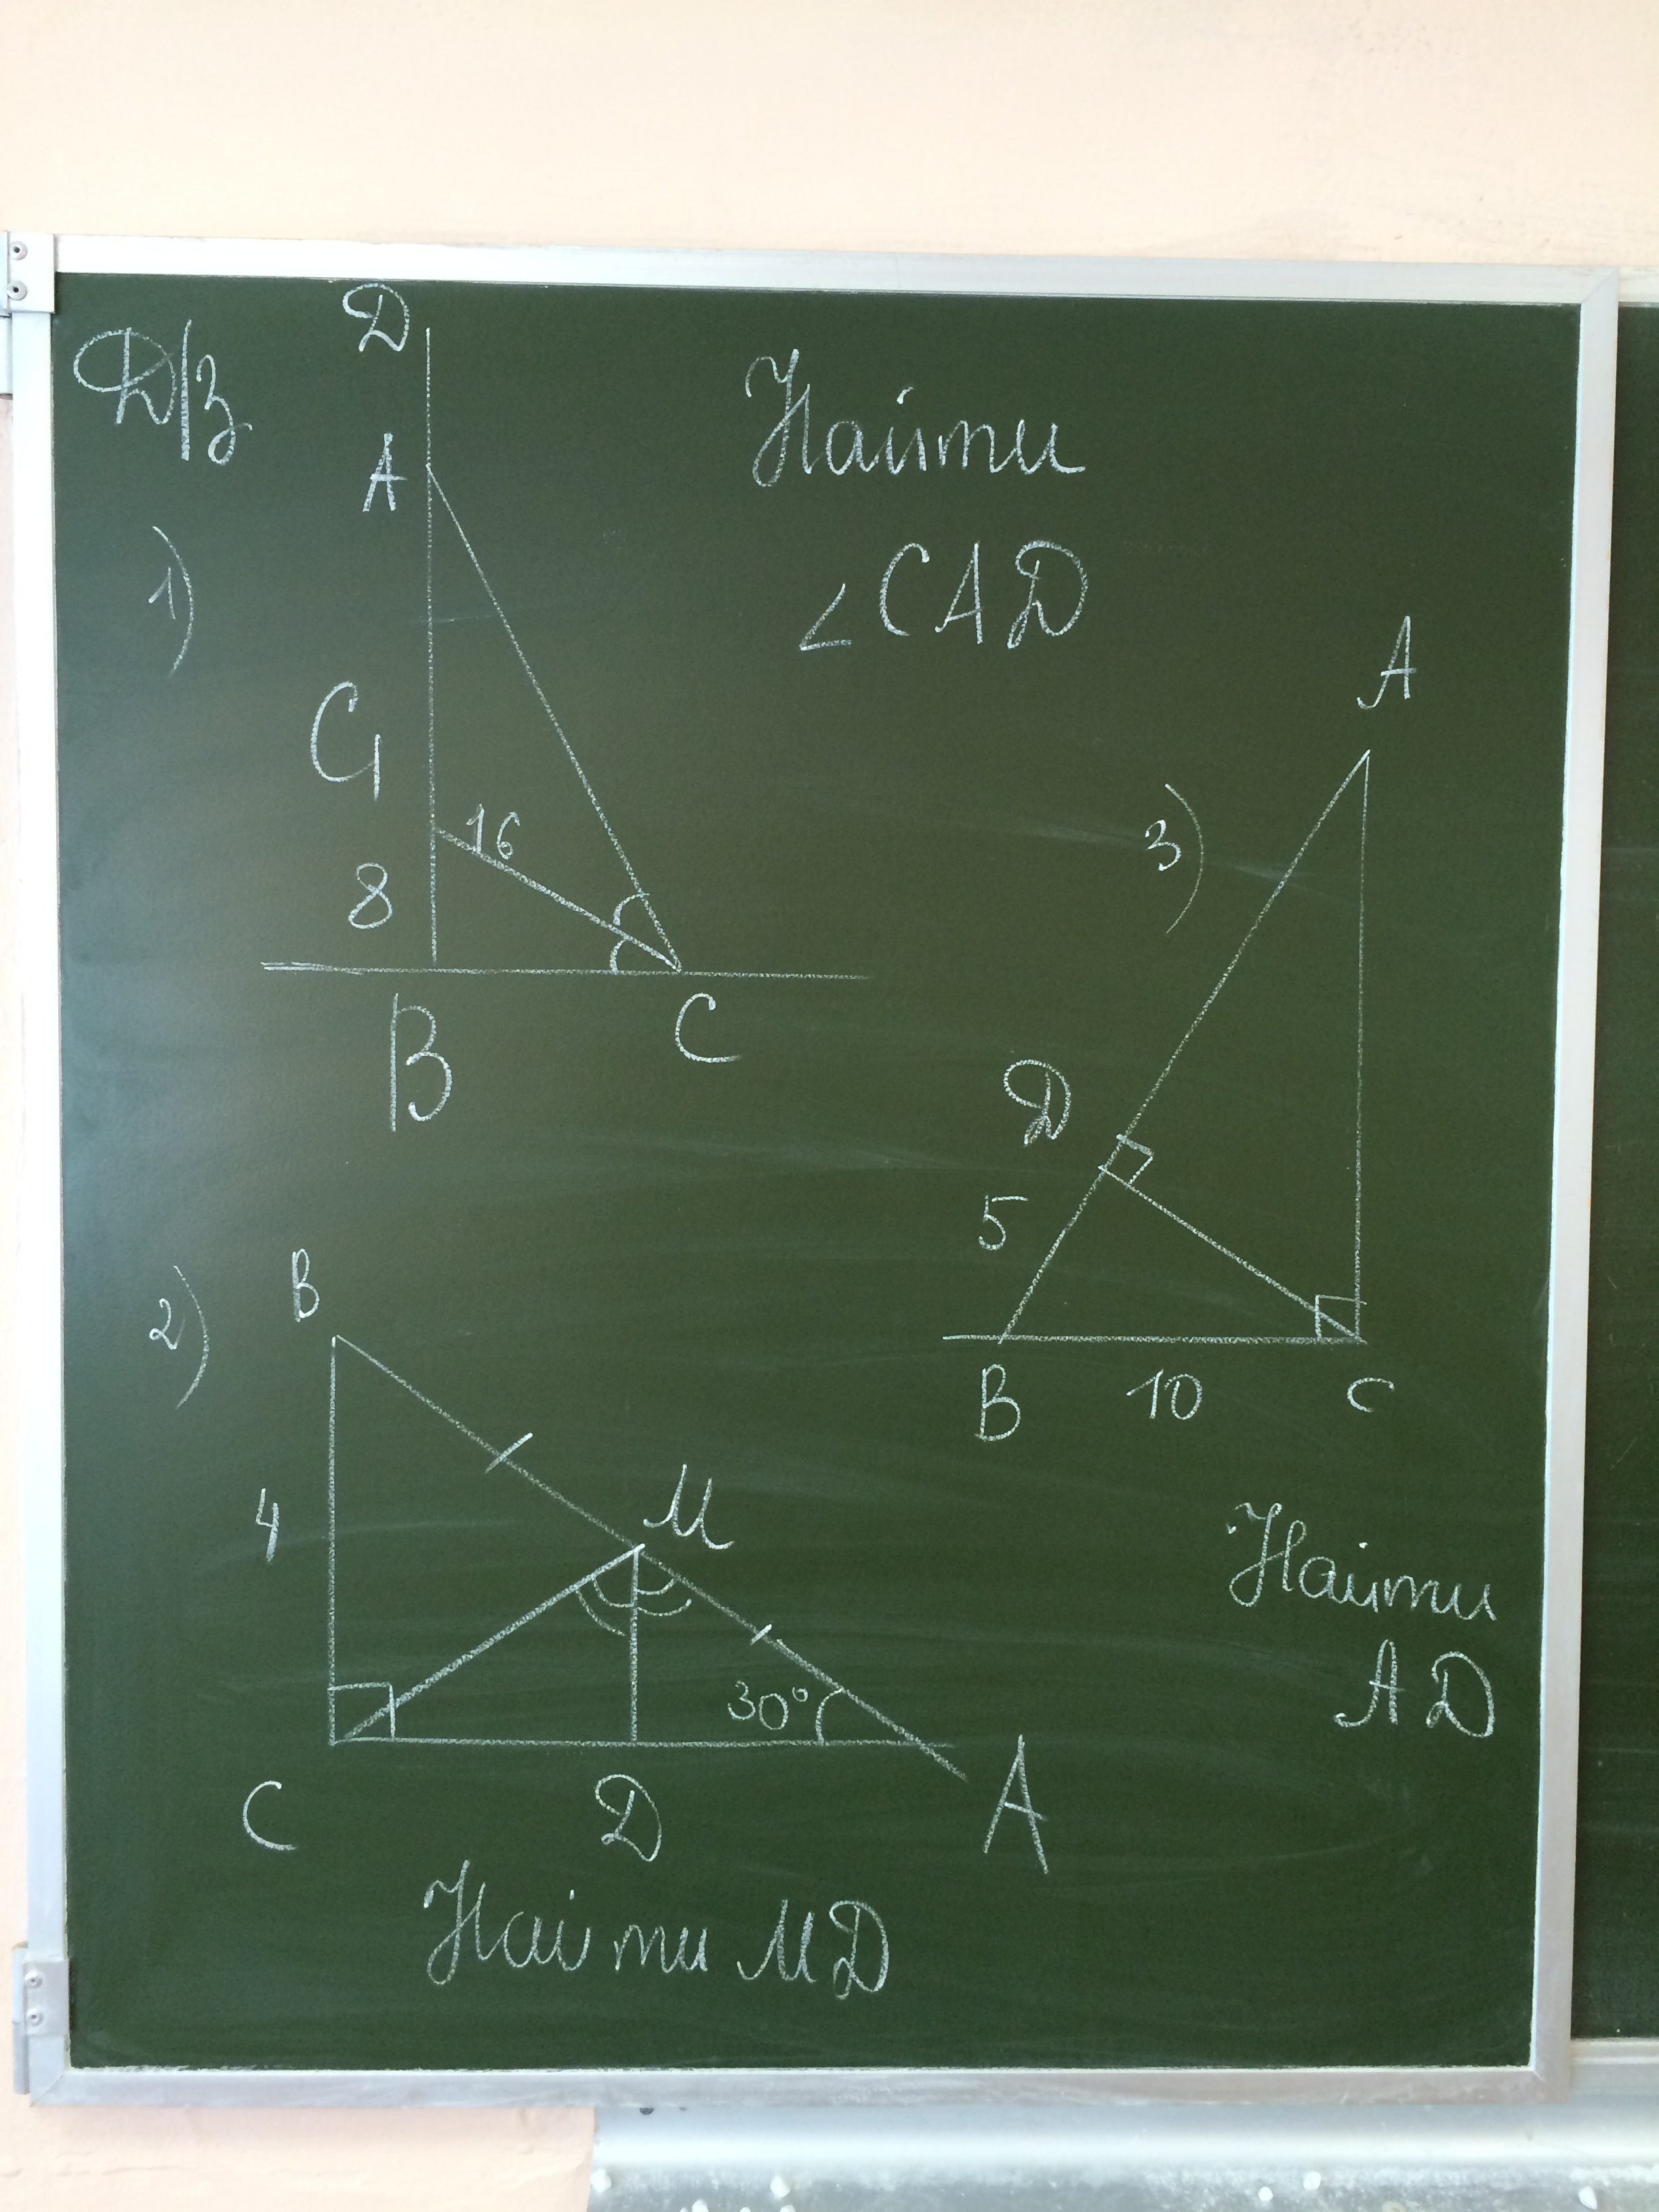 Д/з
1)
D
A
C1
16
8
B
C
Найти
∠CAD
2)
B
4
M
30°
C
D
A
Найти MD
3)
A
D
5
B
10
C
Найти
AD